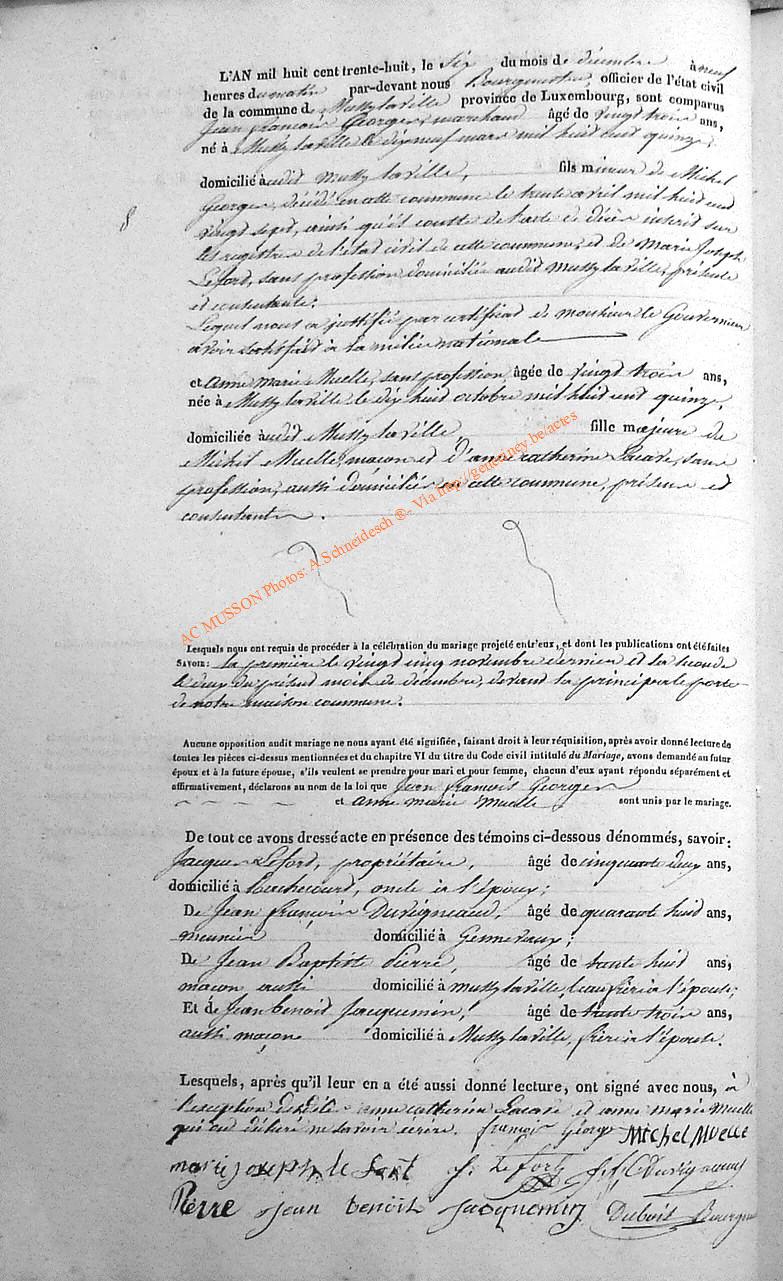 L'AN mil huit cent trente-huit, le six du mois de décembre à neuf
heures du matin par-devant nous Bourguemestre, officier de l'état civil
de la commune de Mussy laville province de Luxembourg, sont comparus
Jean françois Georges, marchand âgé de vingt trois ans,
né à Mussy laville le dix neuf mars mil huit cent quinze,
domicilié à audit Mussy laville, fils mineur de Michel
Georges, décédé en cette commune le trente avril mil huit cent
vingt sept, ainsi qu'il conste de l'acte de décès inscrit sur
les registres de l'état civil de cette commune, et de Marie Joseph
Lefort, sans profession domiciliée audit Mussy laville, présente
et consentante.
Lequel nous a justifié par certificat de monsieur le Gouverneur
avoir satisfait à la milice nationale
et Anne Marie Muelle, sans profession, âgée de vingt trois ans,
née à Mussy laville le dix huit octobre mil huit cent quinze,
domiciliée audit Mussy laville, fille majeure de
Michel Muelle, maçon et d'anne catherine Lacave, sans
profession, aussi domiciliés en cette commune, présens et
consentants.
AC MUSSON Photos: A.Schneidesch ®- Via http://genediney.be/actes
Lesquels nous ont requis de procéder à la célébration du mariage projeté entr'eux, et dont les publications ont été faites
SAVOIR: la première le vingt cinq novembre dernier et la seconde
le deux du présent mois de décembre, devant la principale porte
de notre maison commune.
Aucune opposition audit mariage ne nous ayant été signifiée, faisant droit à leur réquisition, après avoir donné lecture de
toutes les pièces ci-dessus mentionnées et du chapitre VI du titre du Code civil intitulé du Mariage, avons demandé au futur
époux et à la future épouse, s'ils veulent se prendre pour mari et pour femme, chacun d'eux ayant répondu séparément et
affirmativement, déclarons au nom de la loi que Jean françois Georges
et anne marie Muelle sont unis par le mariage.
De tout ce avons dressé acte en présence des témoins ci-dessous dénommés, savoir:
Jacques Lefort, propriétaire, âgé de cinquante deux ans,
domicilié à Louchecourt, oncle à l'époux;
De Jean françois Duvigneaud, âgé de quarante huit ans,
meunier domicilié à Gennevaux;
De Jean Baptiste Pierre, âgé de trente huit ans,
maçon aussi domicilié à Mussy laville, beau frère à l'épouse;
Et de Jean benoit Jacquemin, âgé de trente trois ans,
aussi maçon domicilié à Mussy laville, frère à l'épouse.
Lesquels, après qu'il leur en a été aussi donné lecture, ont signé avec nous, à
l'exception desdites anne catherine Lacave et anne marie Muelle
qui ont déclaré ne savoir écrire. françois George Michel Muelle
marie joseph le fort J. Lefort J. f. Duvigneaud
Pierre Jean benoit Jacquemin Dubois Bourgm